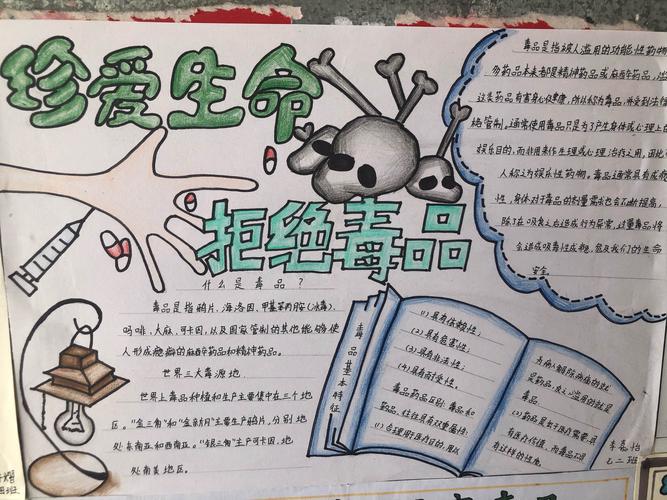 珍爱生命
拒绝毒品
毒品是指被人滥用的功能性药物
这类药品有害身心健康，所以称为毒品，并受到法
格管制。通常使用毒品只是为了产生身体或心理上的
娱乐目的，而非用来作生理或心理治疗之用，因此
人称之为娱乐性药物。毒品通常具有成瘾
性，身体对于毒品的剂量需求也会不断提高，
除了在吸食之后造成行为异常，过量毒品将
会造成吸毒性成瘾，危及我们的生命
安全。
什么是毒品？
毒品是指鸦片、海洛因、甲基苯丙胺（冰毒）、
吗啡、大麻、可卡因，以及国家管制的其他能够使
人形成瘾癖的麻醉药品和精神药品。
世界三大毒源地
世界上毒品种植和生产主要集中在三个地
区。“金三角”和“金新月”主要生产鸦片，分别地
处东南亚和西南亚。“银三角”主产可卡因，地
处南美地区。
毒品基本特征
(1)具有依赖性；
(2)具有危害性；
(3)具有非法性；
(4)具有耐受性。
毒品药品区别：毒品和
药品，往往具有双重属性：
(1)合理用于医疗目的，用以
为病人解除病痛的就
是药品，反之滥用的就是
毒品
(2)药品是用于医疗需要，具
有医疗价值，而毒品不具
有这样的性质。
李嘉怡
七二班